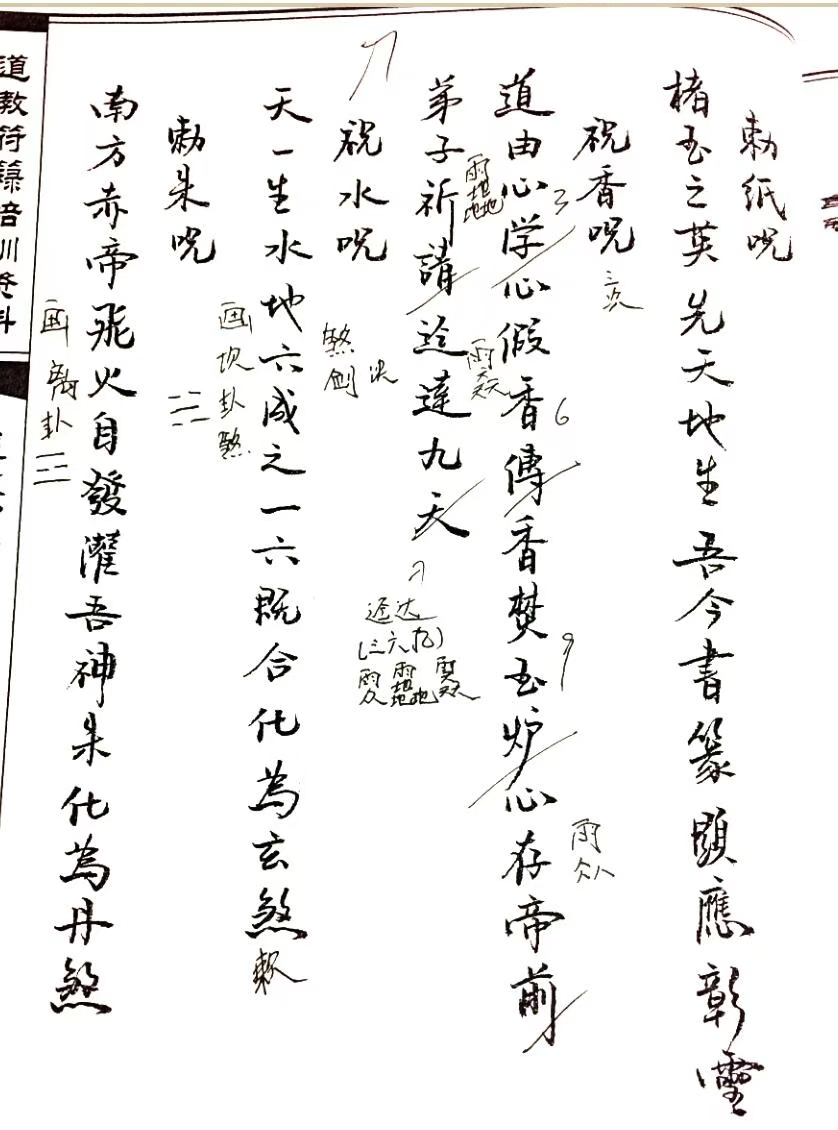 勅紙呪
楮玉之英先天地生吾今書篆顕應彰靈
祝香呪
三次
道由心学心假香傳香焚玉炉心存帝前
3
6
9
弟子祈請迳達九天
迳达
(三六九)
祝水呪
煞剑决
天一生水地六成之一六既合化為玄煞
敕
画坎卦煞
勅朱呪
南方赤帝飛火自發灌吾神朱化為丹煞
画离卦☲
道教符籙培训资料